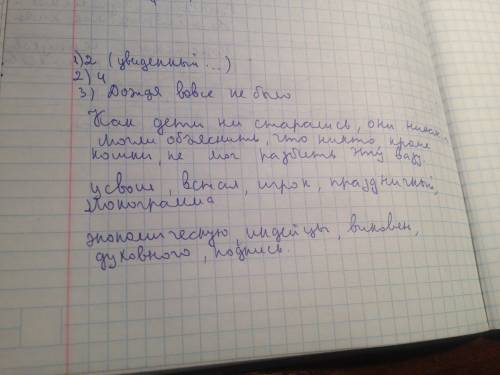 1) 2 (увиденный ...)
2) 4
3) Дождя вовсе не было
Как дети ни старались, они никак
могли объяснить, что никто, кроме
кошки, не мог разбить эту вазу.
усвоил, встал, игрок, праздничный,
монограмма
экономическую, индейцы, виновен,
духовного, подпись.